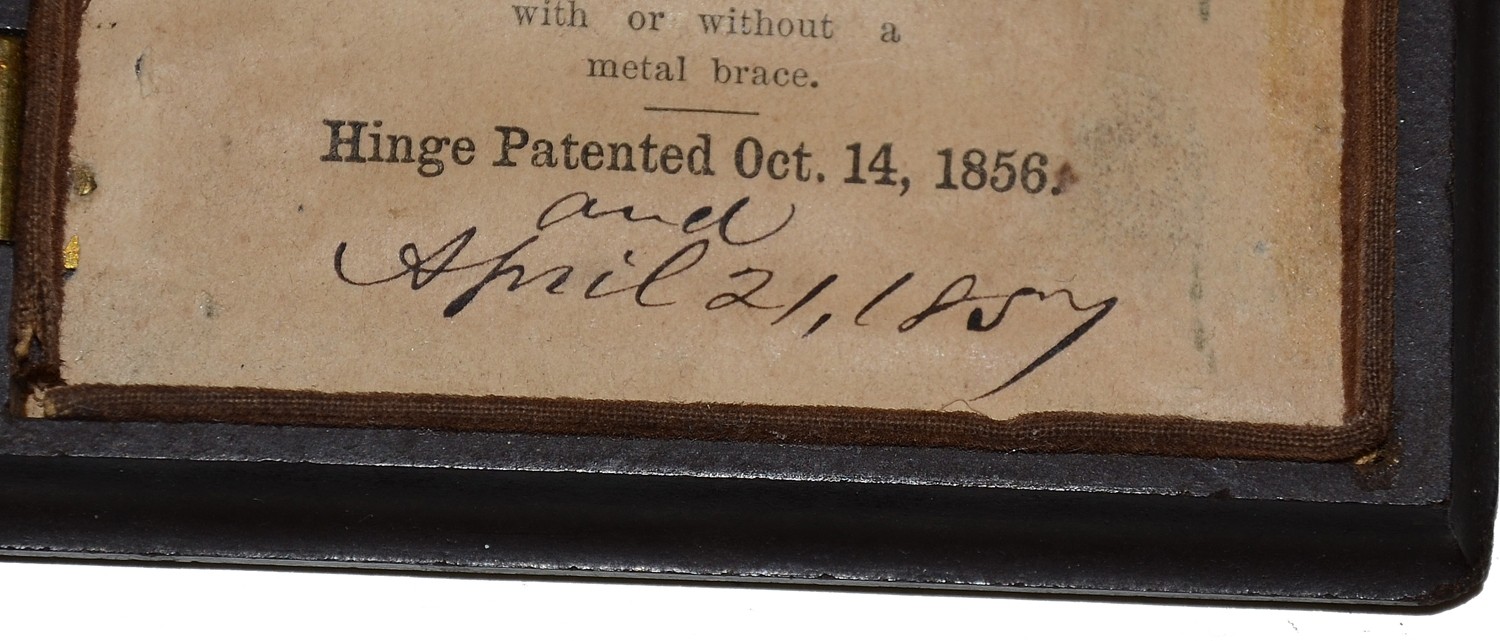 with or without a
metal brace.
Hinge Patented Oct. 14, 1856.
and
April 21, 1857